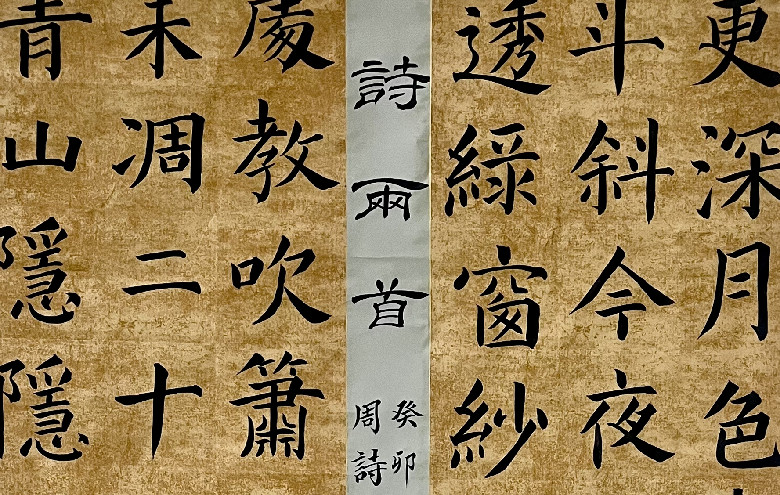 更深月色
斗斜今夜
透綠窗紗
詩兩首
癸卯
周詩
處教吹簫
未凋二十
青山隱隱